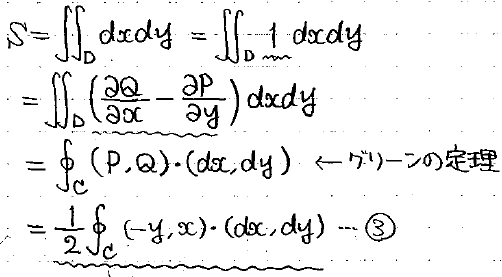 S = ∬_D dxdy = ∬_D 1 dxdy
= ∬_D (∂Q/∂x − ∂P/∂y) dxdy
= ∮_C (P, Q)・(dx, dy) ← グリーンの定理
= 1/2 ∮_C (−y, x)・(dx, dy) … ③